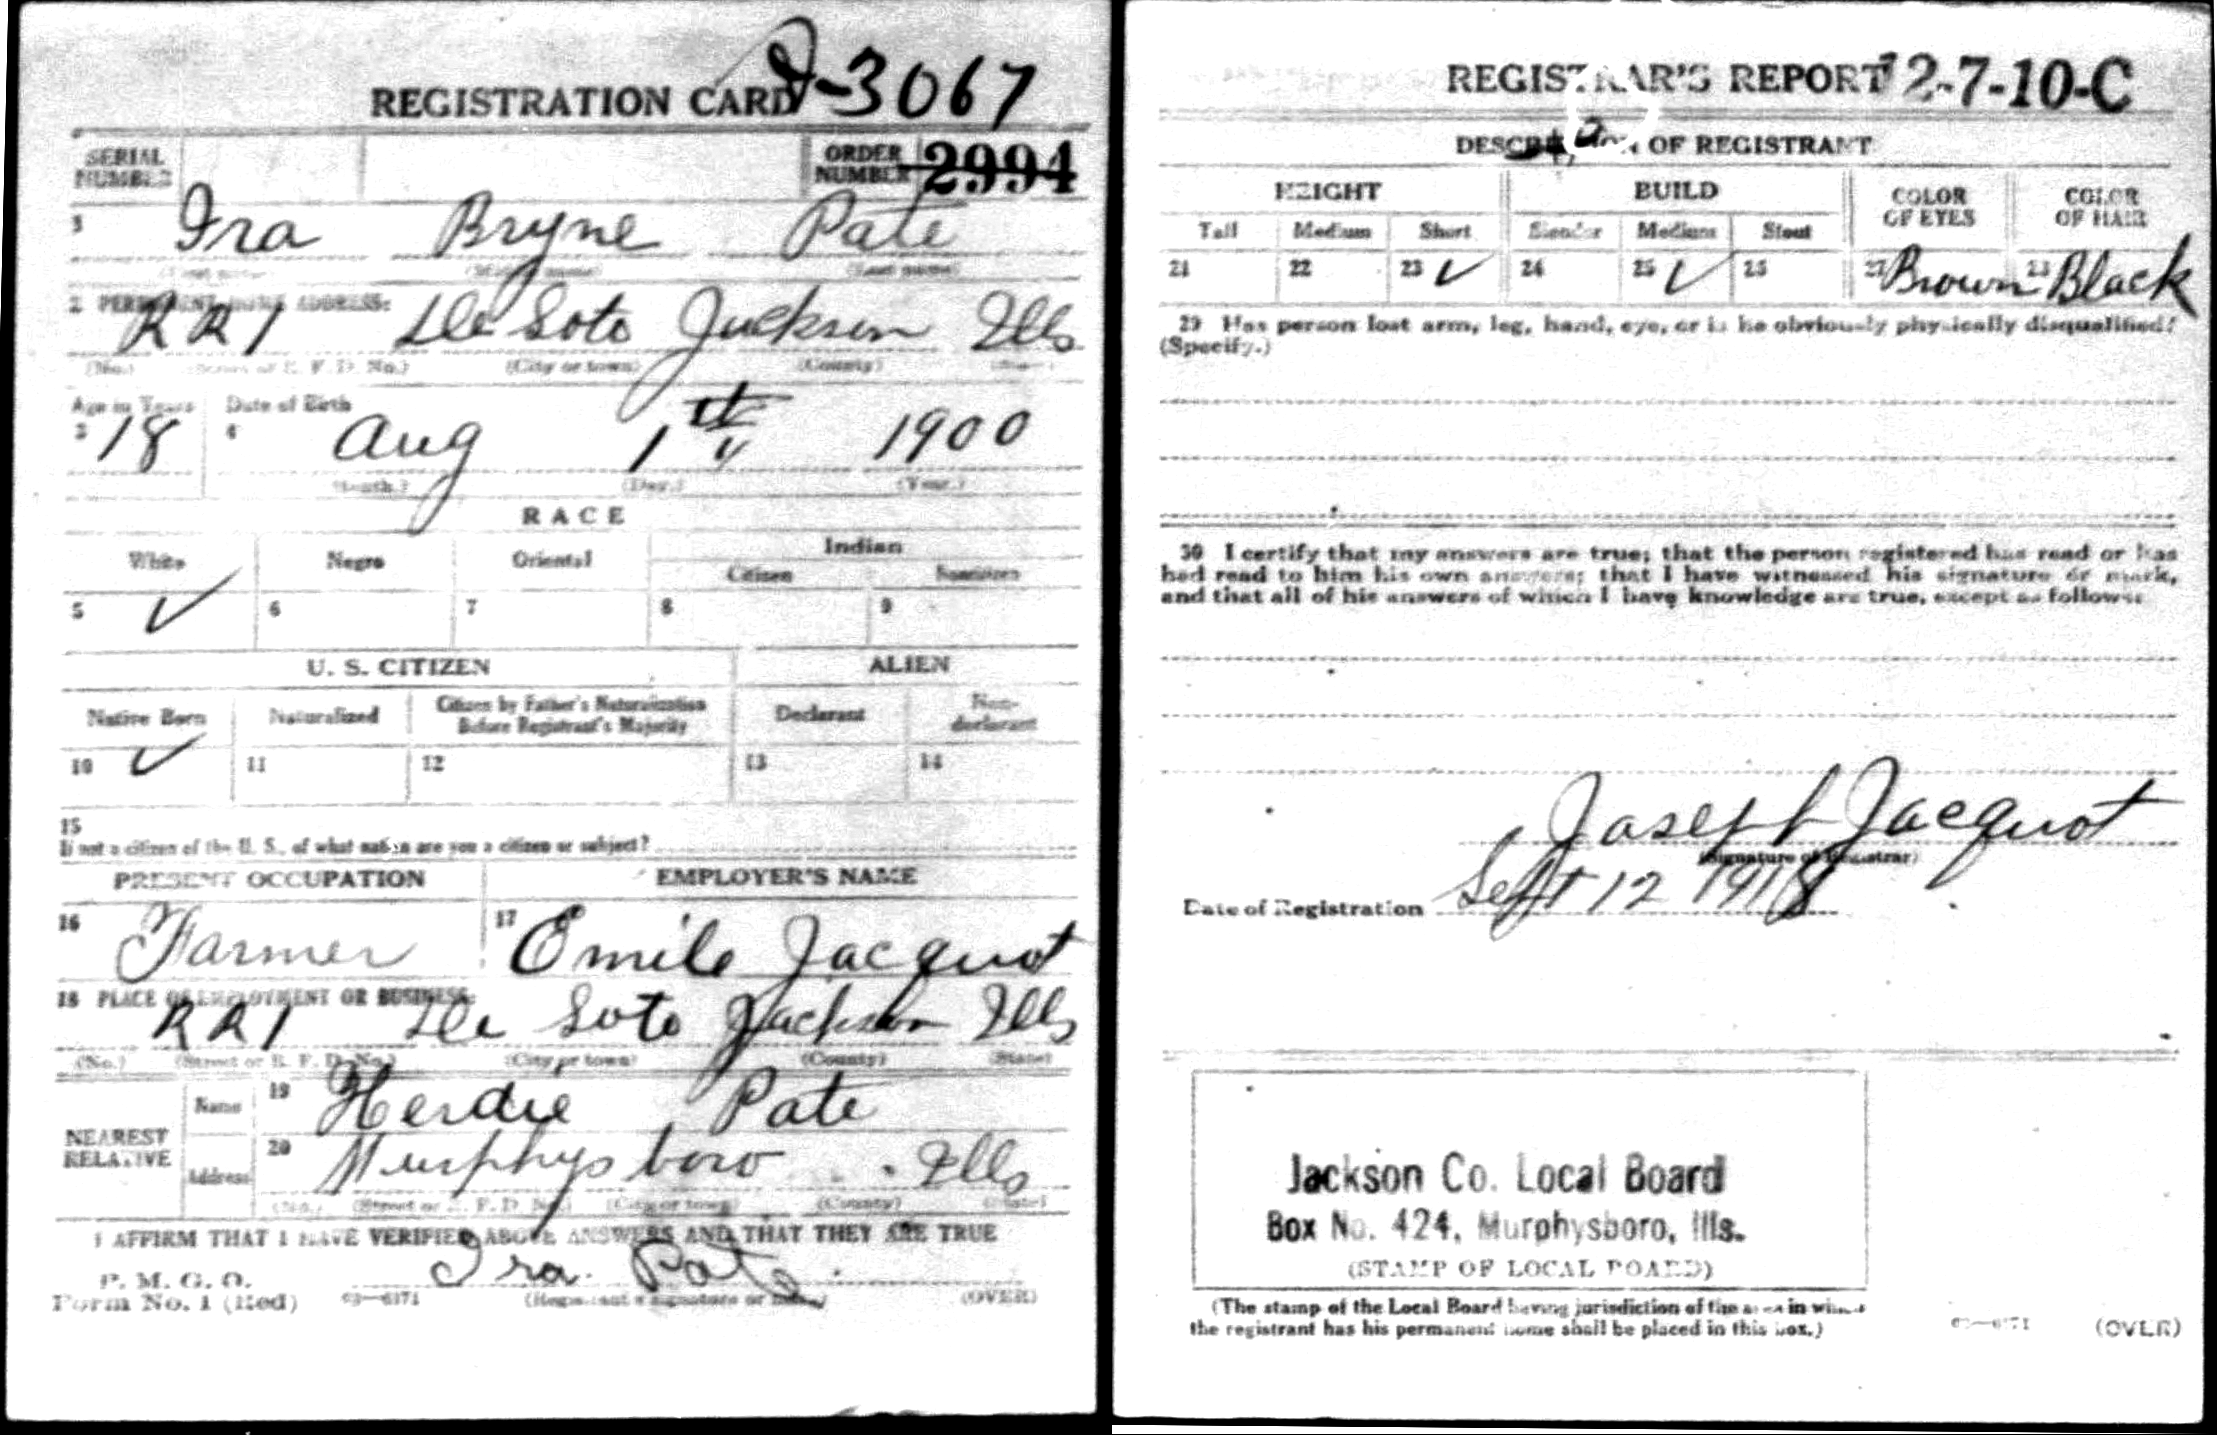 REGISTRATION CARD
3067
SERIAL NUMBER
ORDER NUMBER 2994
1 Ira Bryne Pate
(Last name)
2 PERMANENT HOME ADDRESS:
RR1 De Soto Jackson Ills
(No.) (Street or R. F. D. No.) (City or town) (County)
Age in Years Date of Birth
3 18 4 Aug 1st 1900
(Month.) (Day.) (Year.)
RACE
White Negro Oriental Indian
Citizen Noncitizen
5 ✓ 6 7 8 9
U. S. CITIZEN ALIEN
Native Born Naturalized Citizen by Father's Naturalization Before Registrant's Majority Declarant Non-declarant
10 ✓ 11 12 13 14
15
If not a citizen of the U. S., of what nation are you a citizen or subject?
PRESENT OCCUPATION EMPLOYER'S NAME
16 Farmer 17 Emile Jacquot
18 PLACE OF EMPLOYMENT OR BUSINESS:
RR1 De Soto Jackson Ills
(No.) (Street or R. F. D. No.) (City or town) (County) (State)
NEAREST RELATIVE
Name 19 Herdie Pate
Address 20 Murphysboro Ills
(No.) (Street or R. F. D. No.) (City or town) (County) (State)
I AFFIRM THAT I HAVE VERIFIED ABOVE ANSWERS AND THAT THEY ARE TRUE
P. M. G. O.
Form No. 1 (Red) 03—6171 Ira Pate
(Registrant's signature or mark) (OVER)
REGISTRAR'S REPORT 12-7-10-C
DESCRIPTION OF REGISTRANT
HEIGHT BUILD COLOR OF EYES COLOR OF HAIR
Tall Medium Short Slender Medium Stout
21 22 23 ✓ 24 25 ✓ 26 27 Brown 28 Black
29 Has person lost arm, leg, hand, eye, or is he obviously physically disqualified?
(Specify.)
30 I certify that my answers are true; that the person registered has read or has
had read to him his own answers; that I have witnessed his signature or mark,
and that all of his answers of which I have knowledge are true, except as follows:
Joseph Jacquot
(Signature of Registrar)
Date of Registration Sept 12 1918
Jackson Co. Local Board
Box No. 424, Murphysboro, Ills.
(STAMP OF LOCAL BOARD)
(The stamp of the Local Board having jurisdiction of the area in which
the registrant has his permanent home shall be placed in this box.)
03—6171 (OVER)